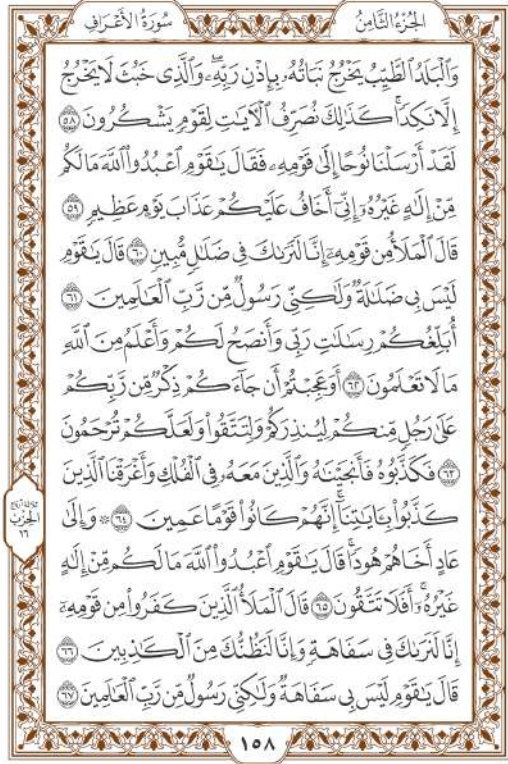 الجُزْءُ الثَّامِنُ
سُورَةُ الأَعْرَافِ
وَٱلْبَلَدُ ٱلطَّيِّبُ يَخْرُجُ نَبَاتُهُۥ بِإِذْنِ رَبِّهِۦۖ وَٱلَّذِى خَبُثَ لَا يَخْرُجُ
إِلَّا نَكِدٗاۚ كَذَٰلِكَ نُصَرِّفُ ٱلْأٓيَٰتِ لِقَوْمٖ يَشْكُرُونَ ٥٨
لَقَدْ أَرْسَلْنَا نُوحًا إِلَىٰ قَوْمِهِۦ فَقَالَ يَٰقَوْمِ ٱعْبُدُواْ ٱللَّهَ مَا لَكُم
مِّنْ إِلَٰهٍ غَيْرُهُۥٓ إِنِّىٓ أَخَافُ عَلَيْكُمْ عَذَابَ يَوْمٍ عَظِيمٖ ٥٩
قَالَ ٱلْمَلَأُ مِن قَوْمِهِۦٓ إِنَّا لَنَرَىٰكَ فِى ضَلَٰلٖ مُّبِينٖ ٦٠ قَالَ يَٰقَوْمِ
لَيْسَ بِى ضَلَٰلَةٞ وَلَٰكِنِّى رَسُولٞ مِّن رَّبِّ ٱلْعَٰلَمِينَ ٦١
أُبَلِّغُكُمْ رِسَٰلَٰتِ رَبِّى وَأَنصَحُ لَكُمْ وَأَعْلَمُ مِنَ ٱللَّهِ
مَا لَا تَعْلَمُونَ ٦٢ أَوَعَجِبْتُمْ أَن جَآءَكُمْ ذِكْرٞ مِّن رَّبِّكُمْ
عَلَىٰ رَجُلٖ مِّنكُمْ لِيُنذِرَكُمْ وَلِتَتَّقُواْ وَلَعَلَّكُمْ تُرْحَمُونَ
٦٣ فَكَذَّبُوهُ فَأَنجَيْنَٰهُ وَٱلَّذِينَ مَعَهُۥ فِى ٱلْفُلْكِ وَأَغْرَقْنَا ٱلَّذِينَ
كَذَّبُواْ بِـَٔايَٰتِنَآۚ إِنَّهُمْ كَانُواْ قَوْمًا عَمِينَ ٦٤ ۞ وَإِلَىٰ
عَادٍ أَخَاهُمْ هُودٗاۚ قَالَ يَٰقَوْمِ ٱعْبُدُواْ ٱللَّهَ مَا لَكُم مِّنْ إِلَٰهٍ
غَيْرُهُۥٓۚ أَفَلَا تَتَّقُونَ ٦٥ قَالَ ٱلْمَلَأُ ٱلَّذِينَ كَفَرُواْ مِن قَوْمِهِۦٓ
إِنَّا لَنَرَىٰكَ فِى سَفَاهَةٖ وَإِنَّا لَنَظُنُّكَ مِنَ ٱلْكَٰذِبِينَ ٦٦
قَالَ يَٰقَوْمِ لَيْسَ بِى سَفَاهَةٞ وَلَٰكِنِّى رَسُولٞ مِّن رَّبِّ ٱلْعَٰلَمِينَ ٦٧
الحِزْبُ
١٦
١٥٨